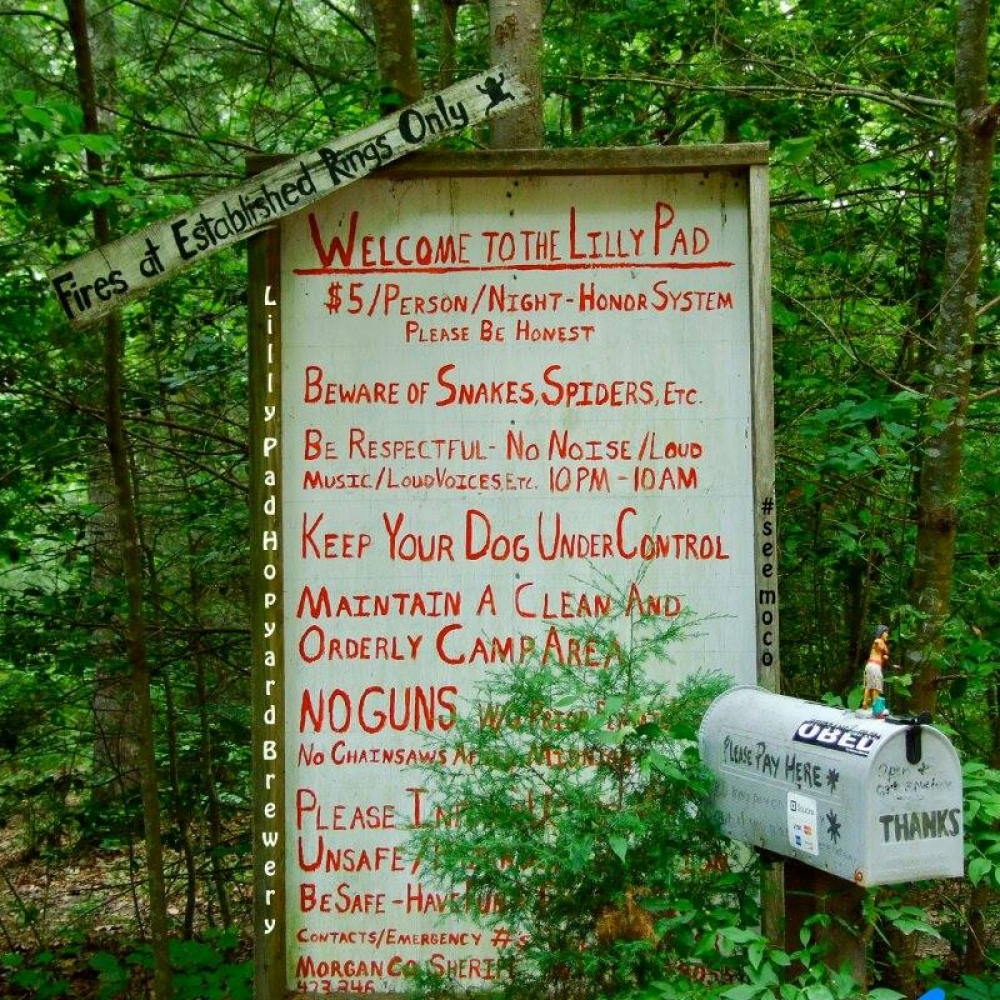 Fires at Established Rings Only
WELCOME TO THE LILLY PAD
$5/PERSON/NIGHT-HONOR SYSTEM
PLEASE BE HONEST
BEWARE OF SNAKES, SPIDERS, ETC.
BE RESPECTFUL- NO NOISE/LOUD
MUSIC/LOUD VOICES, ETC. 10PM-10AM
KEEP YOUR DOG UNDER CONTROL
MAINTAIN A CLEAN AND
ORDERLY CAMP AREA
NO GUNS
NO CHAINSAWS
PLEASE
UNSAFE/
BE SAFE - HAVE FUN
CONTACTS/EMERGENCY #'s
MORGAN CO. SHERIFF
423.346
Lilly Pad Hopyard Brewery
#see moco
OBED
PLEASE PAY HERE *
Square
VISA
THANKS